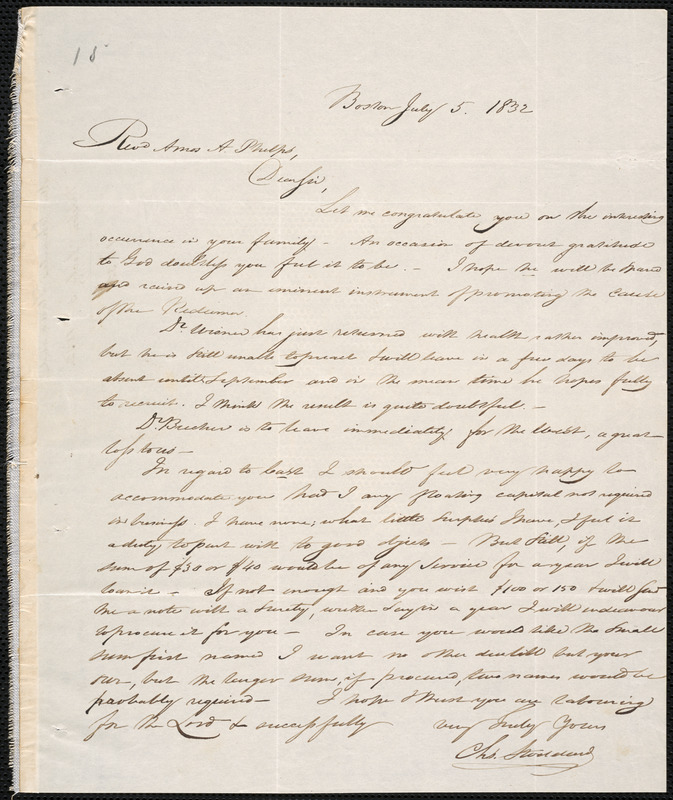 15
Boston July 5. 1832
Revd Amos A. Phelps,
Dear Sir,
Let me congratulate you on the interesting
occurrence in your family – An occasion of devout gratitude
to God doubtless you feel it to be. – I hope he will be spared
and raised up an eminent instrument of promoting the cause
of the Redeemer.
Dr. Wisner has just returned with health rather improved,
but he is still unable to preach & will leave in a few days to be
absent until September and in the mean time he hopes fully
to recruit. I think the result is quite doubtful. –
Dr. Beecher is to leave immediately for the West, a great
loss to us –
In regard to cash I should feel very happy to
accommodate you had I any floating capital not required
in business. I have none; what little surplus I have, I feel it
a duty to part with to good objects – But still, if the
sum of $30 or $40 would be of any service for a year I will
loan it – If not enough and you wish $100 or 150 & will send
me a note with a surety, written say in a year I will endeavour
to procure it for you – In case you would like the small
sum first named I want no other due bill but your
own, but the larger sum, if procured, two names would be
probably required – I hope & trust you are labouring
for the Lord & successfully very truly Yours
Chs. Stoddard